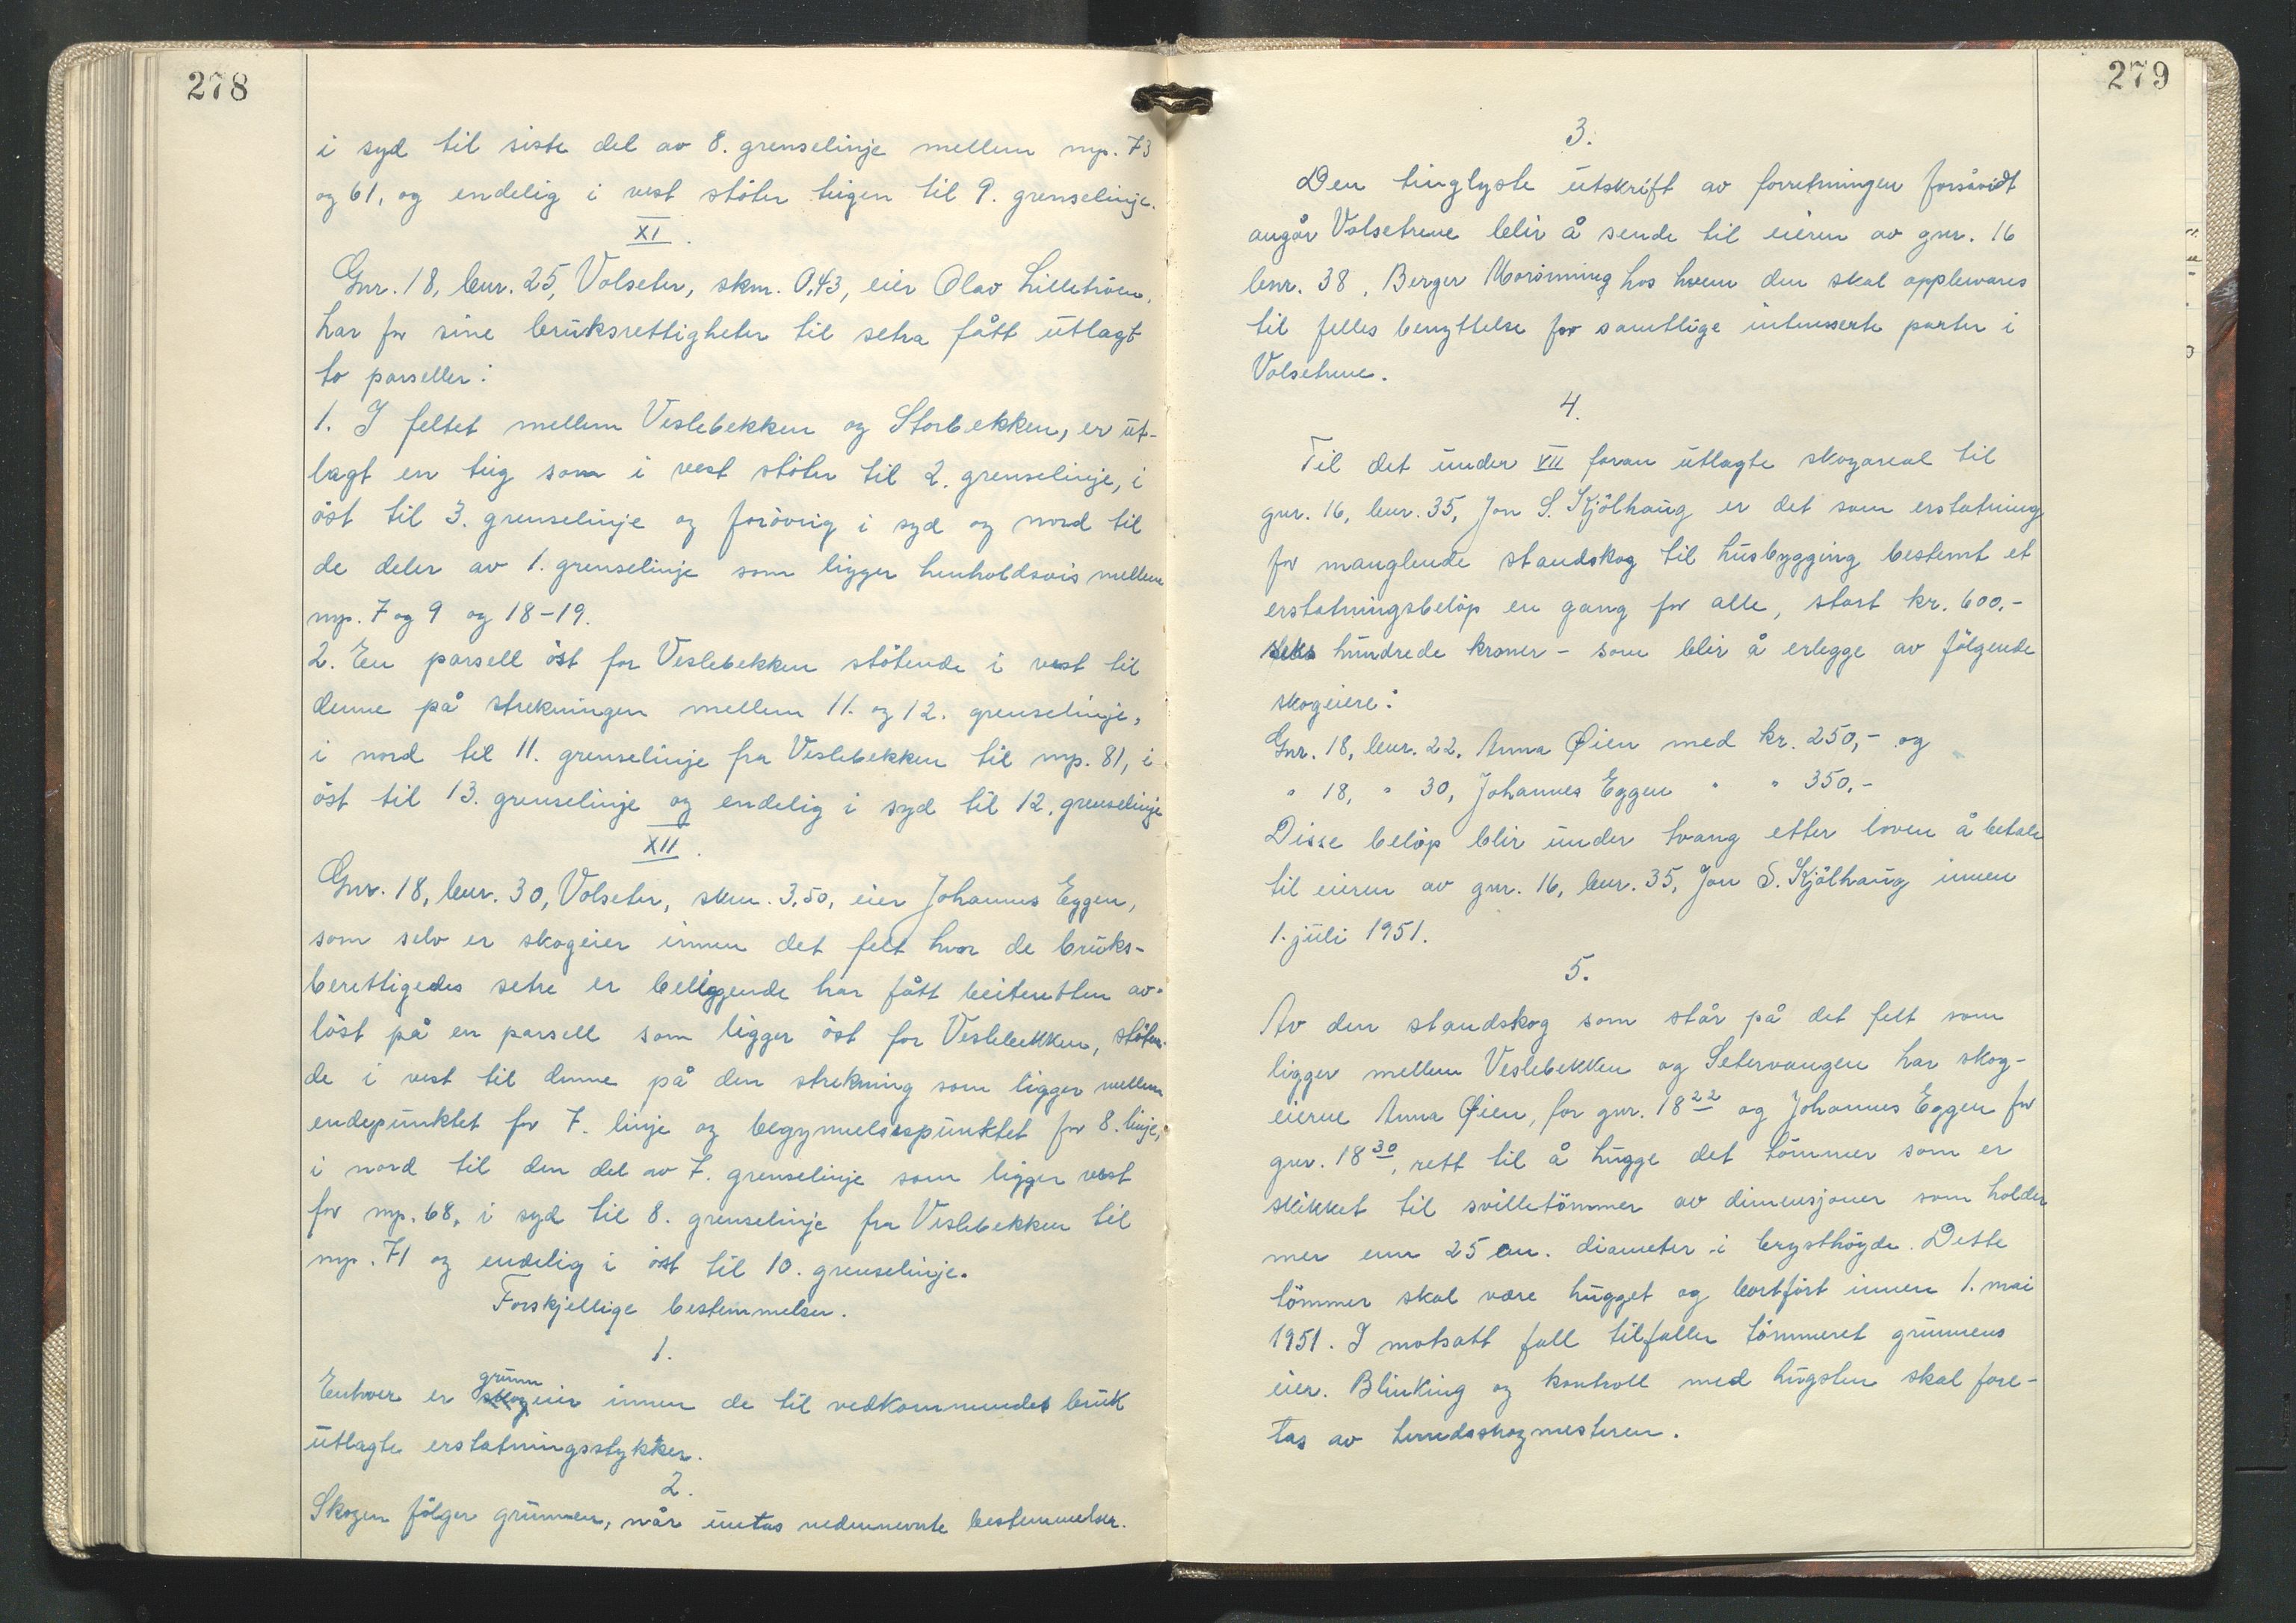 278
i syd til siste del av 8. grenselinje mellem mp. 73
og 61, og endelig i vest støter teigen til 9. grenselinje.
XI.
Gnr. 18, bnr. 25, Volseter, skm. 0,43, eier Olav Lilletrøen,
har for sine bruksrettigheter til setra fått utlagt
to parseller:
1. I feltet mellem Veslebekken og Storbekken, er ut-
lagt en teig som i vest støter til 2. grenselinje, i
øst til 3. grenselinje og forøvrig i syd og nord til
de deler av 1. grenselinje som ligger henholdsvis mellem
mp. 7 og 9 og 18-19.
2. En parsell øst for Veslebekken støtende i vest til
denne på strekningen mellem 11. og 12. grenselinje,
i nord til 11. grenselinje fra Veslebekken til mp. 81, i
øst til 13. grenselinje og endelig i syd til 12. grenselinje
XII.
Gnr. 18, bnr. 30, Volseter, skm. 3,50, eier Johannes Eggen,
som selv er skogeier innen det felt hvor de bruks-
berettigedes setre er beliggende har fått beiteretten av-
løst på en parsell som ligger øst for Veslebekken, støten-
de i vest til denne på den strekning som ligger mellem
endepunktet for 7. linje og begynnelsespunktet for 8. linje,
i nord til den del av 7. grenselinje som ligger vest
for mp. 68, i syd til 8. grenselinje fra Veslebekken til
mp. 71 og endelig i øst til 10. grenselinje.
Forskjellige bestemmelser.
1.
grunn
Enhver er skogeier innen de til vedkommendes bruk
utlagte erstatningsstykker.
2.
Skogen følger grunnen, når untas nedennevnte bestemmelser.
279
3.
Den tinglyste utskrift av forretningen forsåvidt
angår Volsetrene blir å sende til eieren av gnr. 16
bnr. 38, Berger hos hvem den skal oppbevares
til felles benyttelse for samtlige interesserte parter i
Volsetrene.
4.
Til det under VII foran utlagte skogareal til
gnr. 16, bnr. 35, Jon S. Kjølhaug er det som erstatning
for manglende standskog til husbygging bestemt et
erstatningsbeløp en gang for alle, stort kr. 600,-
seks hundrede kroner - som blir å erlegge av følgende
skogeiere:
Gnr. 18, bnr. 22, Anna Øien med kr. 250,- og
" 18, " 30, Johannes Eggen " " 350,-
Disse beløp blir under tvang etter loven å betale
til eieren av gnr. 16, bnr. 35, Jon S. Kjølhaug innen
1. juli 1951.
5.
Av den standskog som står på det felt som
ligger mellem Veslebekken og Setervangen har skog-
eierne Anna Øien, for gnr. 18 22 og Johannes Eggen for
gnr. 18 30, rett til å hugge det tømmer som er
skikket til svilletømmer av dimensjoner som holder
mer enn 25 cm. diameter i brysthøyde. Dette
tømmer skal være hugget og bortført innen 1. mai
1951. I motsatt fall tilfaller tømmeret grunnens
eier. Blinking og kontroll med hugsten skal fore-
tas av herredsskogmesteren.